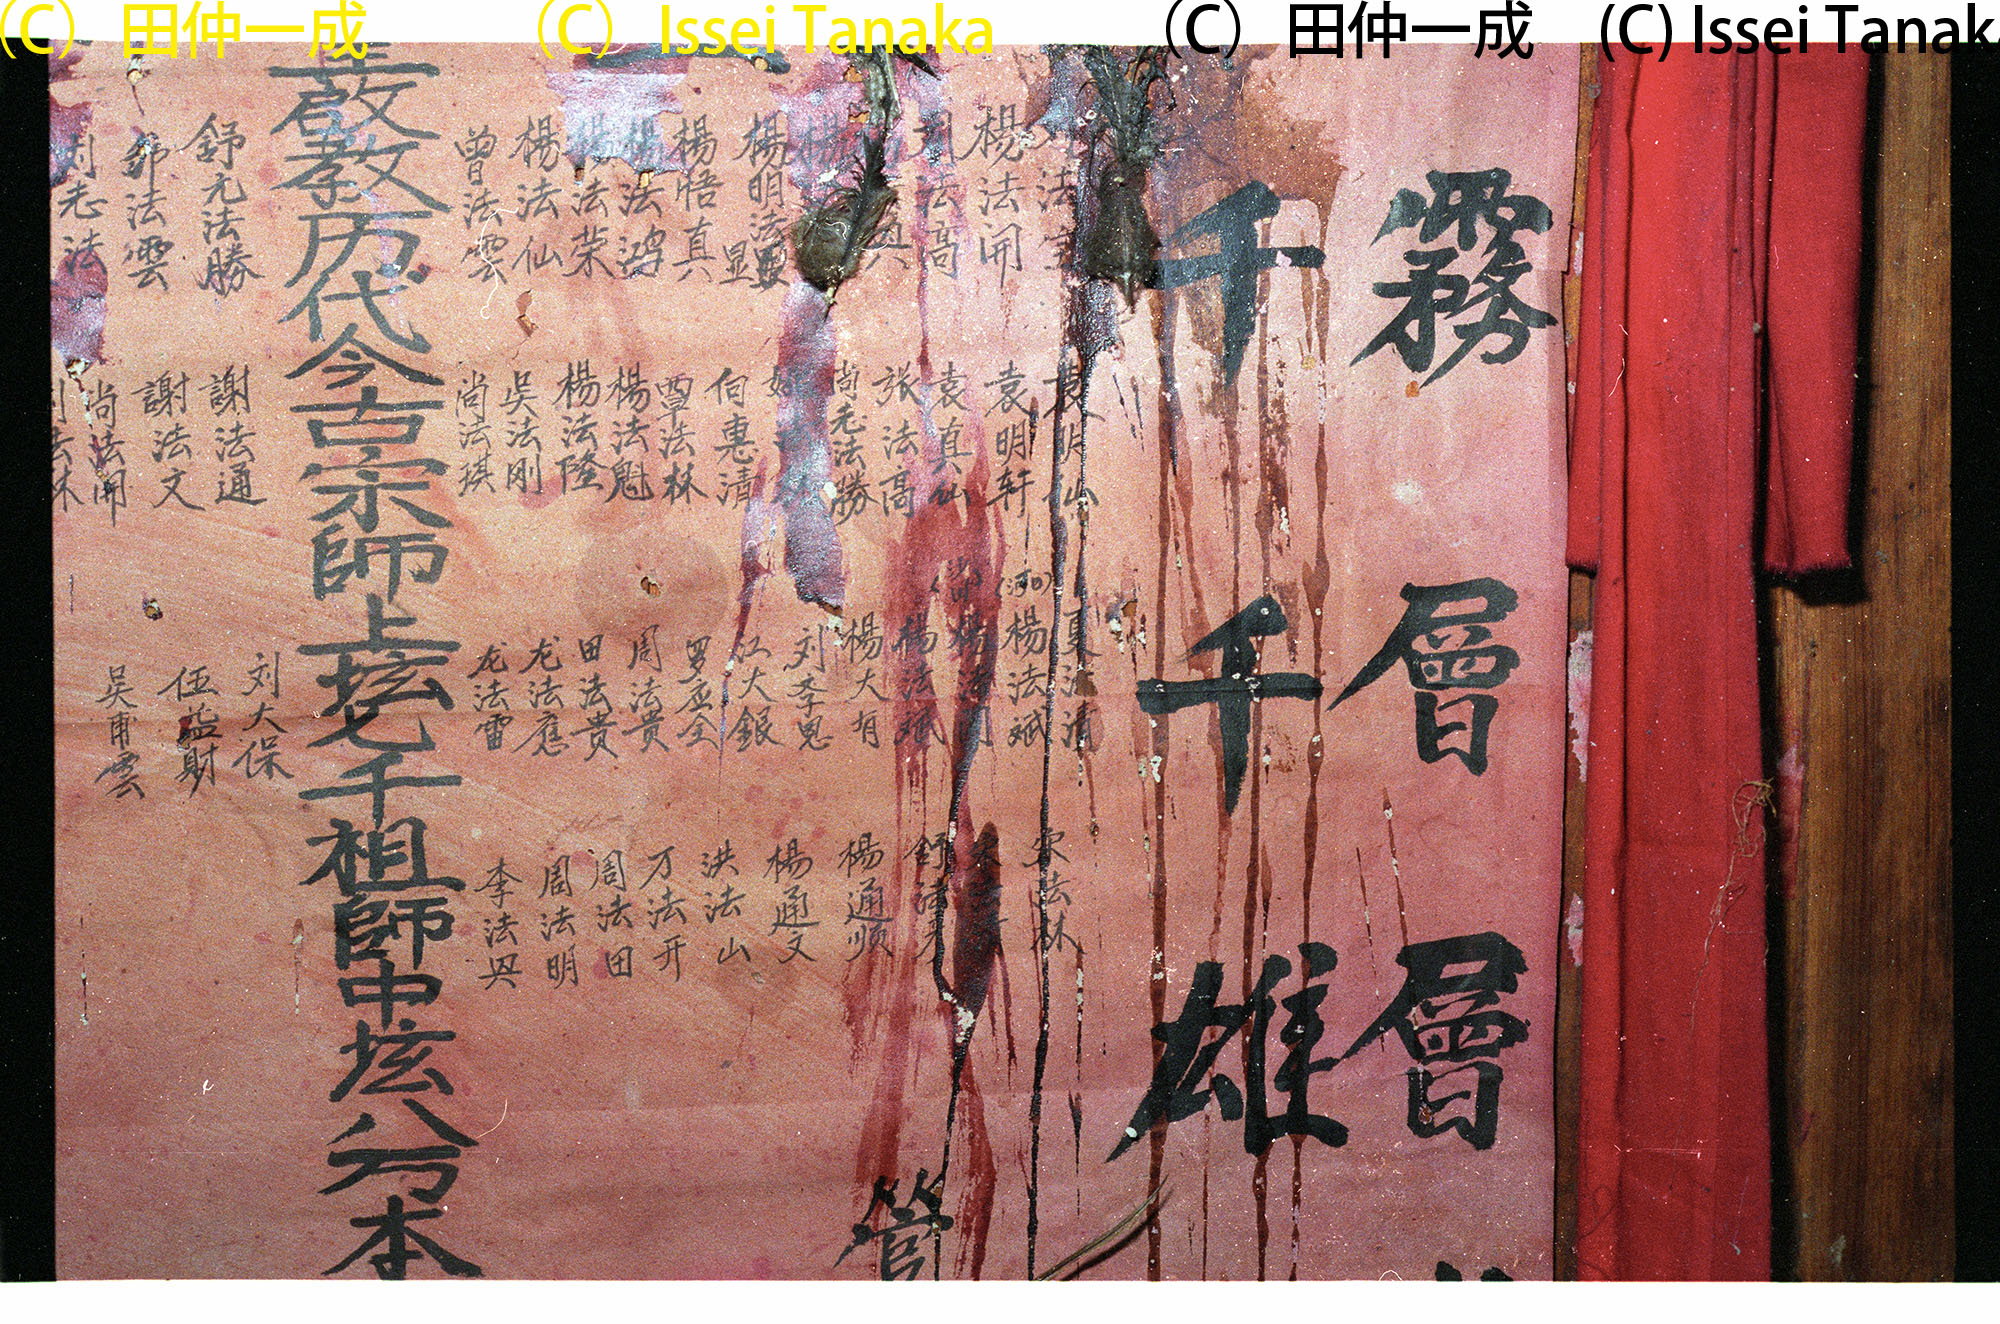 (C) 田仲一成 (C) Issei Tanaka (C) 田仲一成 (C) Issei Tanaka
霧層層
千千雄
管
楊法開
刘法高
楊明法顕
楊悟真
楊法鸿
楊法荣
楊法仙
曾法雲
袁明山
袁明轩
袁真仙
张法高
尚老法勝
向惠清
覃法林
楊法魁
楊法陸
吴法刚
尚法琪
夏法清
(河口)
楊法斌
楊法斌
楊大有
刘李鬼
江大銀
罗应全
周法贵
田法贵
龙法應
龙法雷
宋法林
楊通顺
楊通文
洪法山
万法开
周法田
周法明
李法兴
啟教历代今古宗師上坛七千祖師中坛八万本
舒元法勝
邹法雲
刘老法
謝法通
謝法文
尚法開
刘法林
刘大保
伍益財
吴甫雲